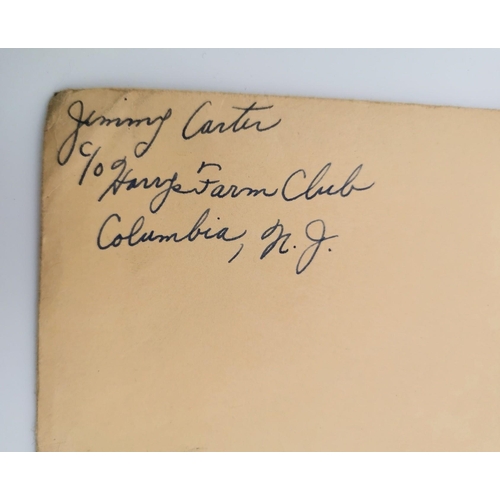 Jimmy Carter
c/o Harrys Farm Club
Columbia, N. J.